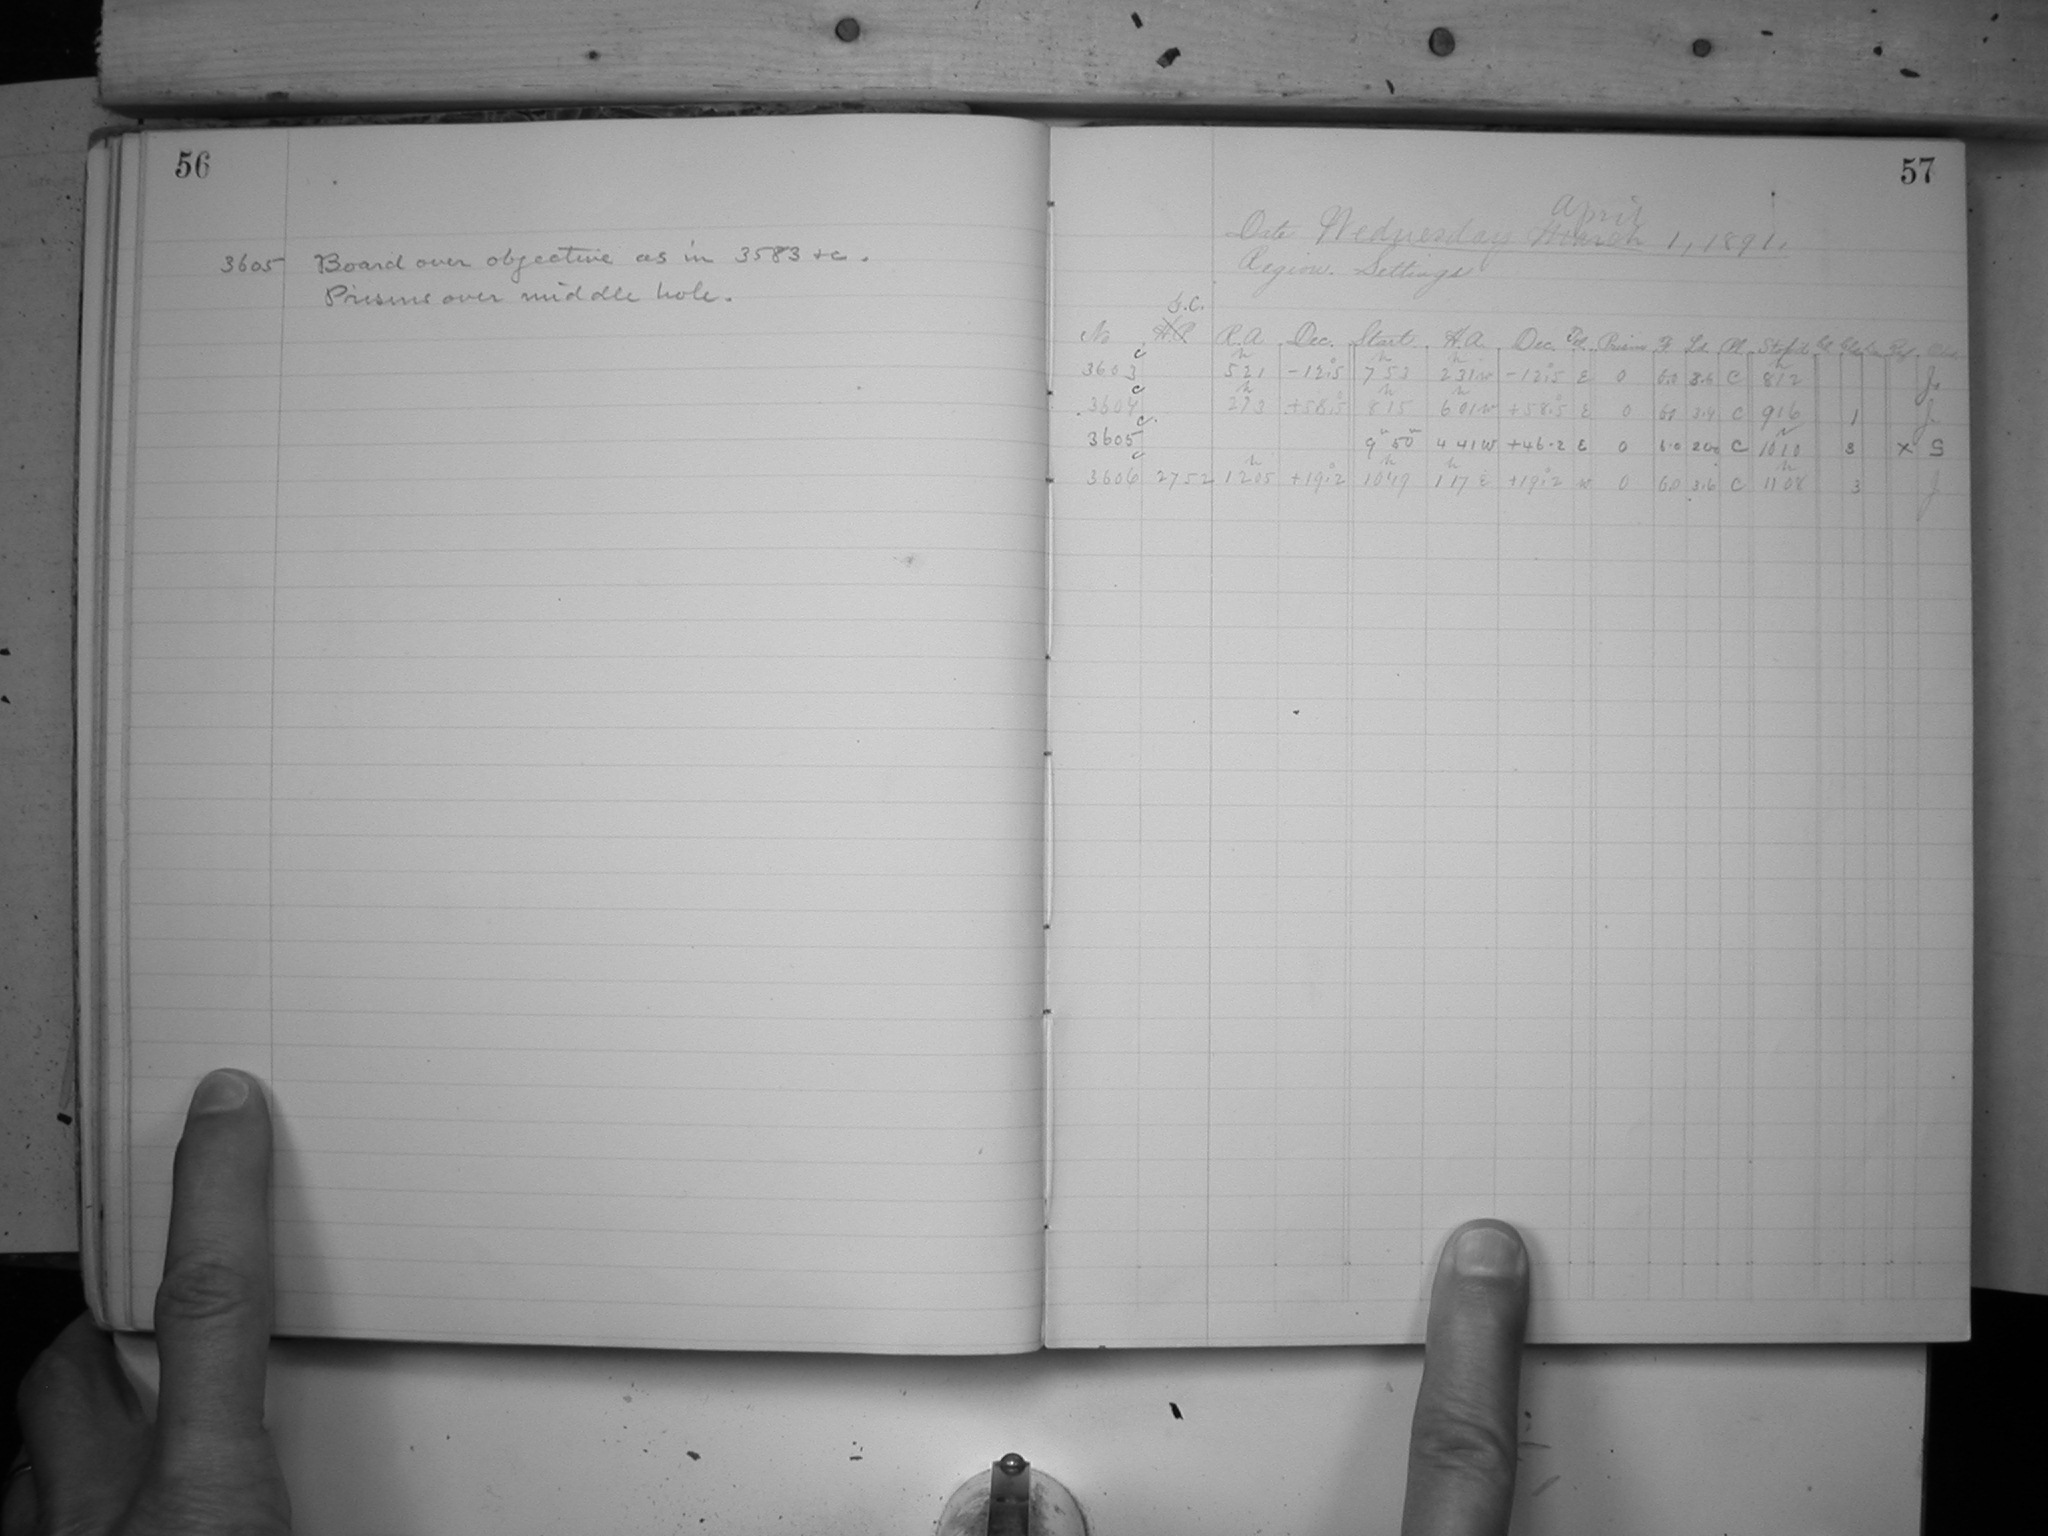 56
3605 Board over objective as in 3583 +c.
Prisms over middle hole.
57
April
Date Wednesday March 1, 1891.
Region. Settings
G.C.
No H.P. R.A. Dec. Start H.A. Dec. Tel. Prisms F. Ld. Pl. Stop'd
3603 c 5h21 -12°.5 7h53 2h31w -12°.5 E 0 6.0 3.6 C 8h12 J.
3604 c 2h13 +58°.5 8h15 6h01w +58°.5 E 0 6.0 3.4 C 916 1 J.
3605 c. 9h 50m 4 41w +46.2 E 0 6.0 200 C 10h10 3 x S
3606 c 2752 12h05 +19°.2 10h49 1h17 E +19°.2 w 0 6.0 3.6 C 11h08 3 J